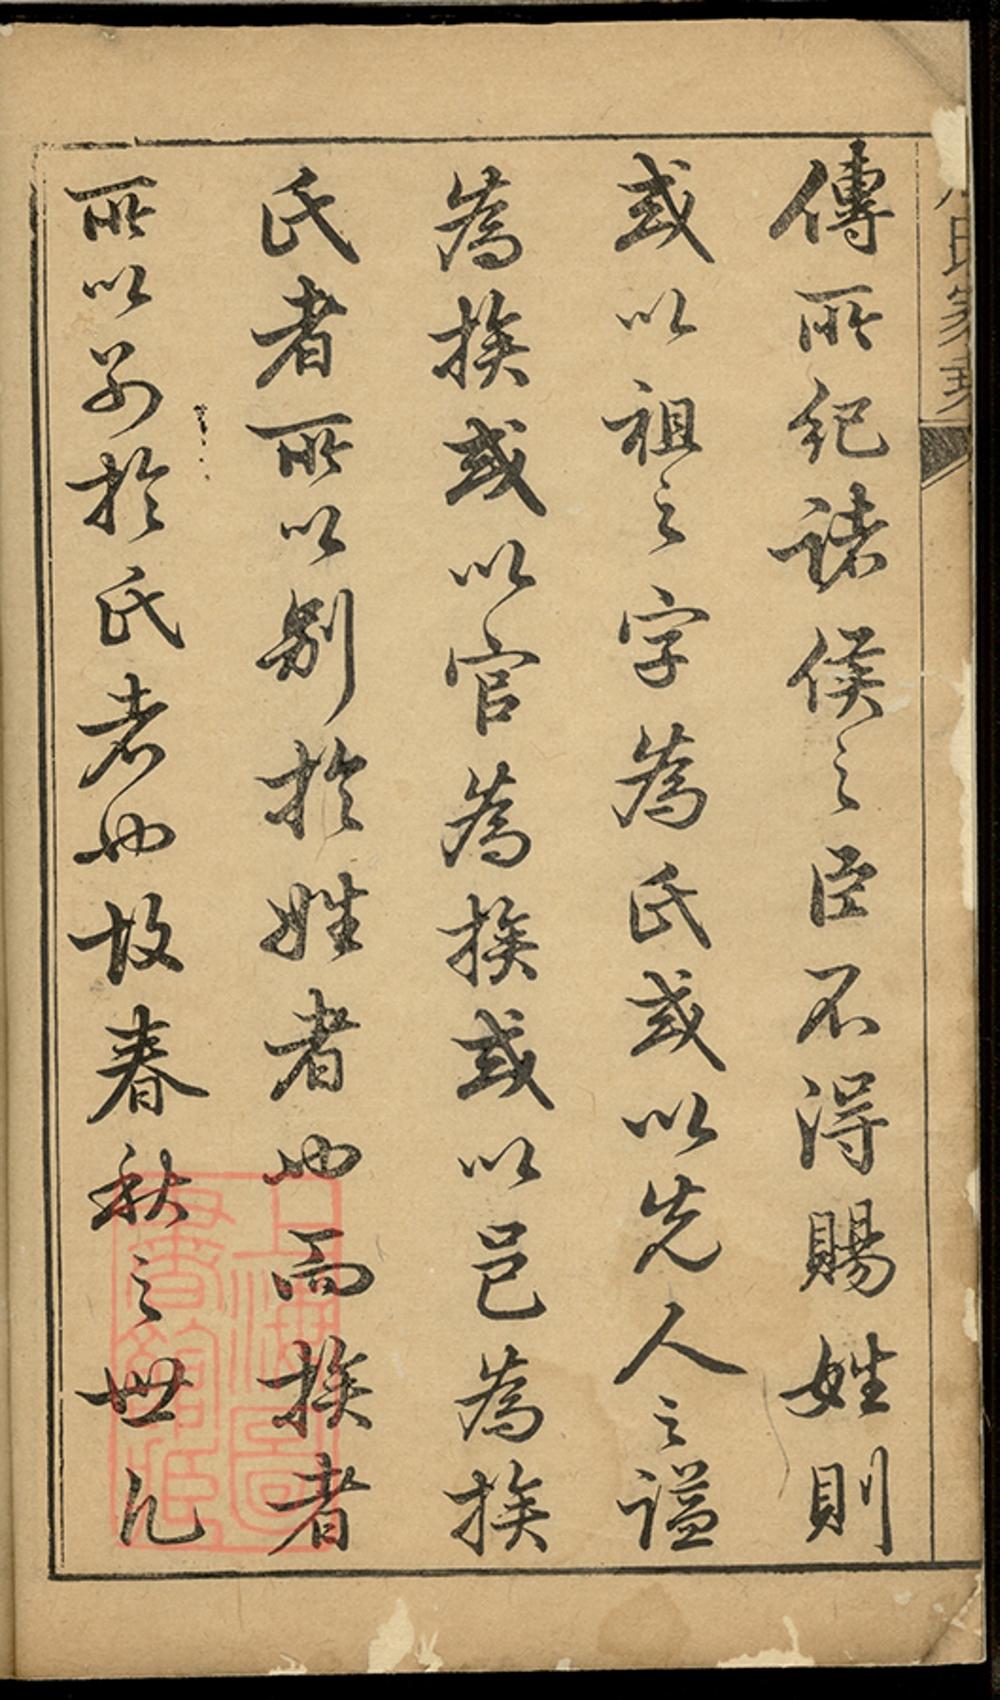 傳所紀諸侯之臣不得賜姓則
或以祖之字為氏或以先人之謚
為族或以官為族或以邑為族
氏者所以别於姓者也而族者
所以别於氏者也故春秋之世凡
氏家乘
上海圖
書館藏